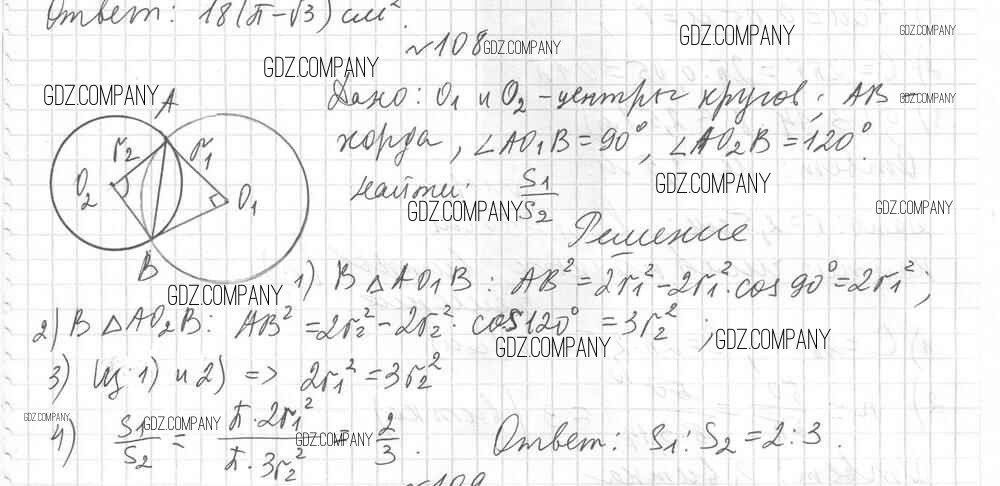 Ответ: 18(π-√3) см².
№108 GDZ.COMPANY
GDZ.COMPANY
GDZ.COMPANY
GDZ.COMPANY
GDZ.COMPANY
A
r₂ r₁
O₂ O₁
B
Дано: O₁ и O₂ - центры кругов, AB -
GDZ.COMPANY
хорда, ∠AO₁B = 90°, ∠AO₂B = 120°
Найти: S₁/S₂
GDZ.COMPANY
GDZ.COMPANY
GDZ.COMPANY
Решение
GDZ.COMPANY
1) В △AO₁B: AB² = 2r₁² - 2r₁² · cos 90° = 2r₁²;
2) В △AO₂B: AB² = 2r₂² - 2r₂² · cos 120° = 3r₂²;
GDZ.COMPANY
GDZ.COMPANY
3) Из 1) и 2) => 2r₁² = 3r₂²
GDZ.COMPANY
4) S₁/S₂ = π·2r₁²/π·3r₂² = 2/3. Ответ: S₁:S₂ = 2:3.
GDZ.COMPANY
GDZ.COMPANY
№109